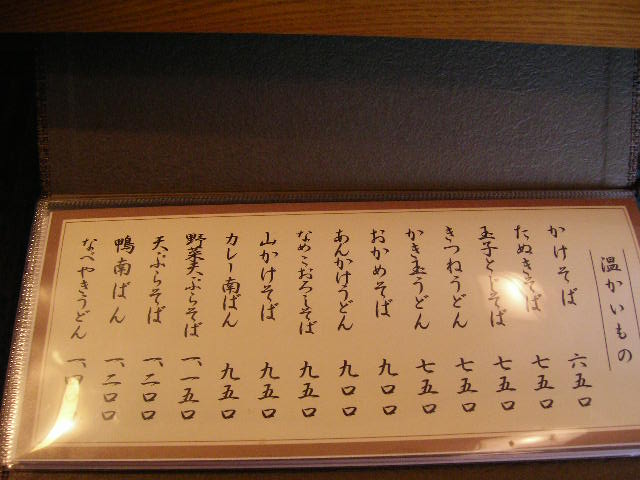 温かいもの
かけそば 六五〇
たぬきそば 七五〇
玉子とじそば 七五〇
きつねうどん 七五〇
かき玉うどん 七五〇
おかめそば 九〇〇
あんかけうどん 九〇〇
なめこおろしそば 九五〇
山かけそば 九五〇
カレー南ばん 九五〇
野菜天ぷらそば 一、一五〇
天ぷらそば 一、二〇〇
鴨南ばん 一、二〇〇
なべやきうどん